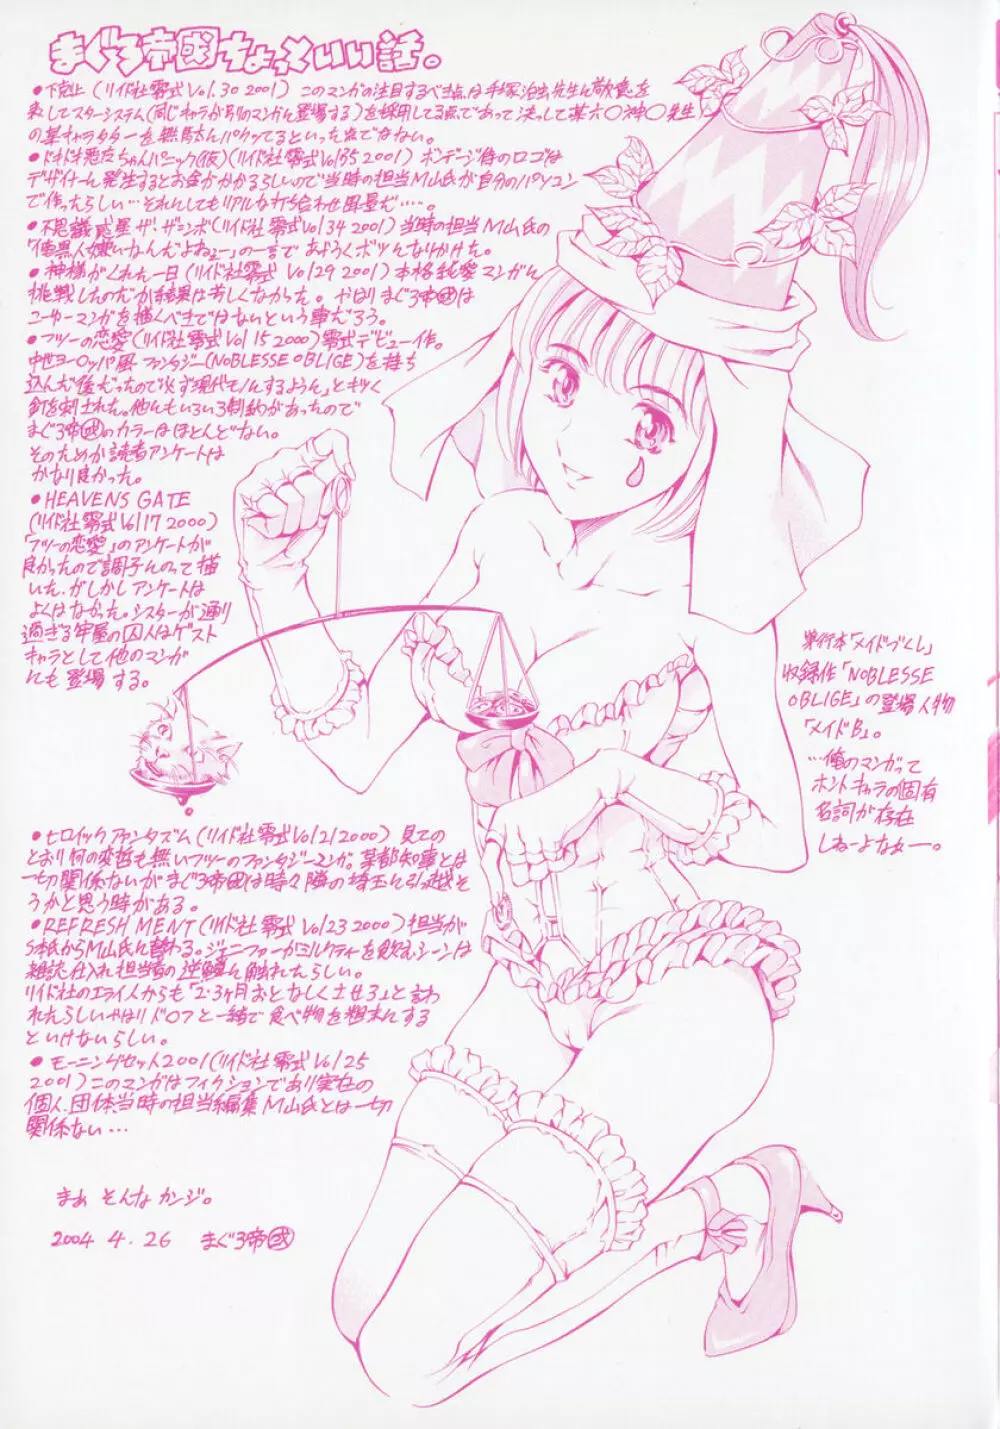 まぐろ帝國ちょっといい話。
●下剋上(リイド社零式Vol.30 2001)このマンガの注目するべき点は手塚治虫先生に敬意を
表してスターシステム(同じキャラが別のマンガに登場する)を採用してる点であって決して某六〇神〇先生
の某キャラクターを無駄にパクってるといった訳でない。
●ドキドキ悪友ちゃんパニック(仮)(リイド社零式Vol.35 2001)ボンデージ侍のロゴは
デザイナーに発注するとお金がかかるらしいので当時の担当M山氏が自分のパソコン
で作ったらしい…それにしてもリアルな打ち合わせ風景だ…。
●不思議惑星ザ・ザーンボ(リイド社零式Vol.34 2001)当時の担当M山氏の
「俺黒人嫌いなんだよねェー」の一言であやうくボツになりかけた。
●神様がくれた一日(リイド社零式Vol29 2001)本格純愛マンガに
挑戦したのだが結果は芳しくなかった。やはりまぐろ帝國は
こーゆーマンガを描くべきではないという事だろう。
●フツーの恋愛(リイド社零式Vol15 2000)零式デビュー作。
中世ヨーロッパ風ファンタジー(NOBLESSE OBLIGE)を持ち
込んだ後だったので「必ず現代モノにするように」とキツく
釘を刺された。他にもいろいろ制約があったので
まぐろ帝國のカラーはほとんどない。
そのためか読者アンケートは
かなり良かった。
●HEAVENS GATE
(リイド社零式Vol17 2000)
「フツーの恋愛」のアンケートが
良かったので調子にのって描
いた。がしかしアンケートは
よくはなかった。シスターが通り
過ぎる牢屋の囚人はゲスト
キャラとして他のマンガ
にも登場する。
単行本「メイドづくし」
収録作「NOBLESSE
OBLIGE」の登場人物
「メイドB」。
…俺のマンガって
ホントキャラの固有
名詞が存在
しねーよなァー。
●ヒロイックファンタズム(リイド社零式Vol21 2000)見ての
とおり何の変哲も無いフツーのファンタジーマンガ。某都知事とは
一切関係ないがまぐろ帝國は時々隣の埼玉に引っ越そ
うかと思う時がある。
●REFRESH MENT(リイド社零式Vol.23 2000)担当が
S本氏からM山氏に替わる。ジェニファーがミルクティーを飲むシーンは
雑誌仕入れ担当者の逆鱗に触れたらしい。
リイド社のエライ人からも「2・3ヶ月おとなしくさせろ」と言わ
れたらしいやはりドロフと一緒で食べ物を粗末にする
といけないらしい。
●モーニングセット2001(リイド社零式Vol25
2001)このマンガはフィクションであり実在の
個人、団体当時の担当編集M山氏とは一切
関係ない…
まぁ そんな カンジ。
2004 4.26 まぐろ帝國